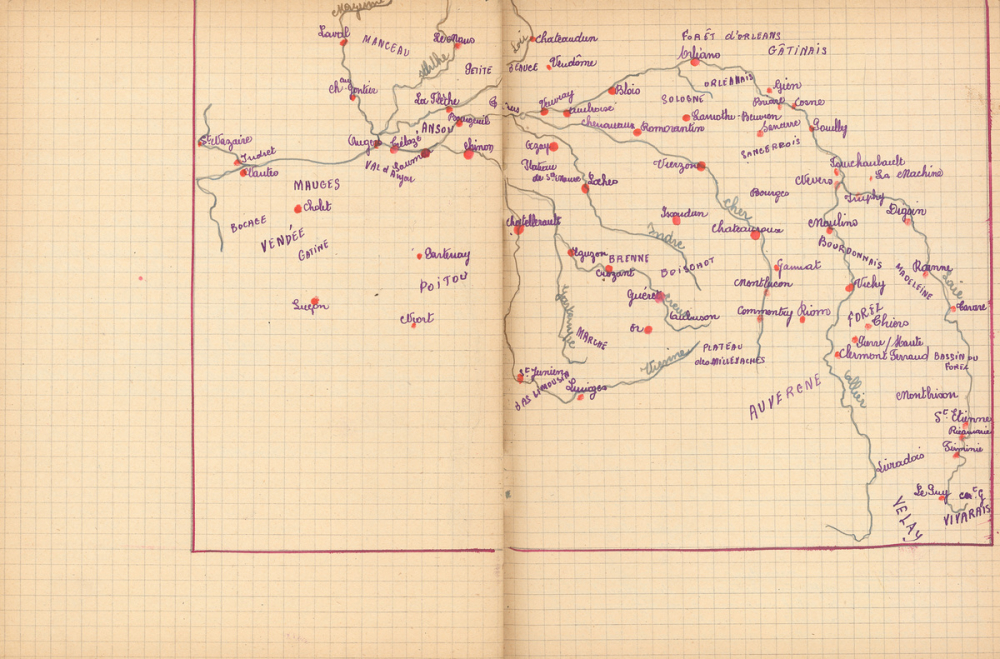 Mayenne
Laval
MANCEAU
Le Mans
Sarthe
Loir
Chateaudun
Vendôme
PETITE BEAUCE
FORÊT d'ORLEANS
GÂTINAIS
Orléans
ORLÉANAIS
Chau Gontier
La Flèche
Blois
SOLOGNE
Gien
Briare
Cosne
Vouvray
Amboise
Bourgueil
ANJOU
Chenonceaux
Romorantin
Lamothe-Beuvron
Sancerre
Pouilly
SANCERROIS
St Nazaire
Indret
Nantes
Angers
Trélazé
VAL d'Anjou
Saumur
Chinon
Plateau
de Ste Maure
Loches
Vierzon
Fourchambault
La Machine
Nevers
Imphy
Digoin
MAUGES
Cholet
BOCAGE
VENDÉE
GATINE
Bourges
Cher
Issoudun
Chateauroux
Moulins
BOURBONNAIS
Chatellerault
Indre
Parthenay
POITOU
Eguzon
BRENNE
Crozant
BOISCHOT
Gannat
Montluçon
Vichy
MADELEINE
Roanne
Loire
Guéret
Creuse
Aubusson
Luçon
Niort
Commentry
Riom
FOREZ
Thiers
Gartempe
MARCHE
PLATEAU
des MILLEVACHES
Vienne
Pierre/Haute
Clermont Ferrand
BASSIN DU
FOREZ
St Junien
BAS LIMOUSIN
Limoges
AUVERGNE
Allier
Montbrison
St Etienne
Ricamarie
Firminie
Livradois
Le Puy
VELAY
VIVARAIS